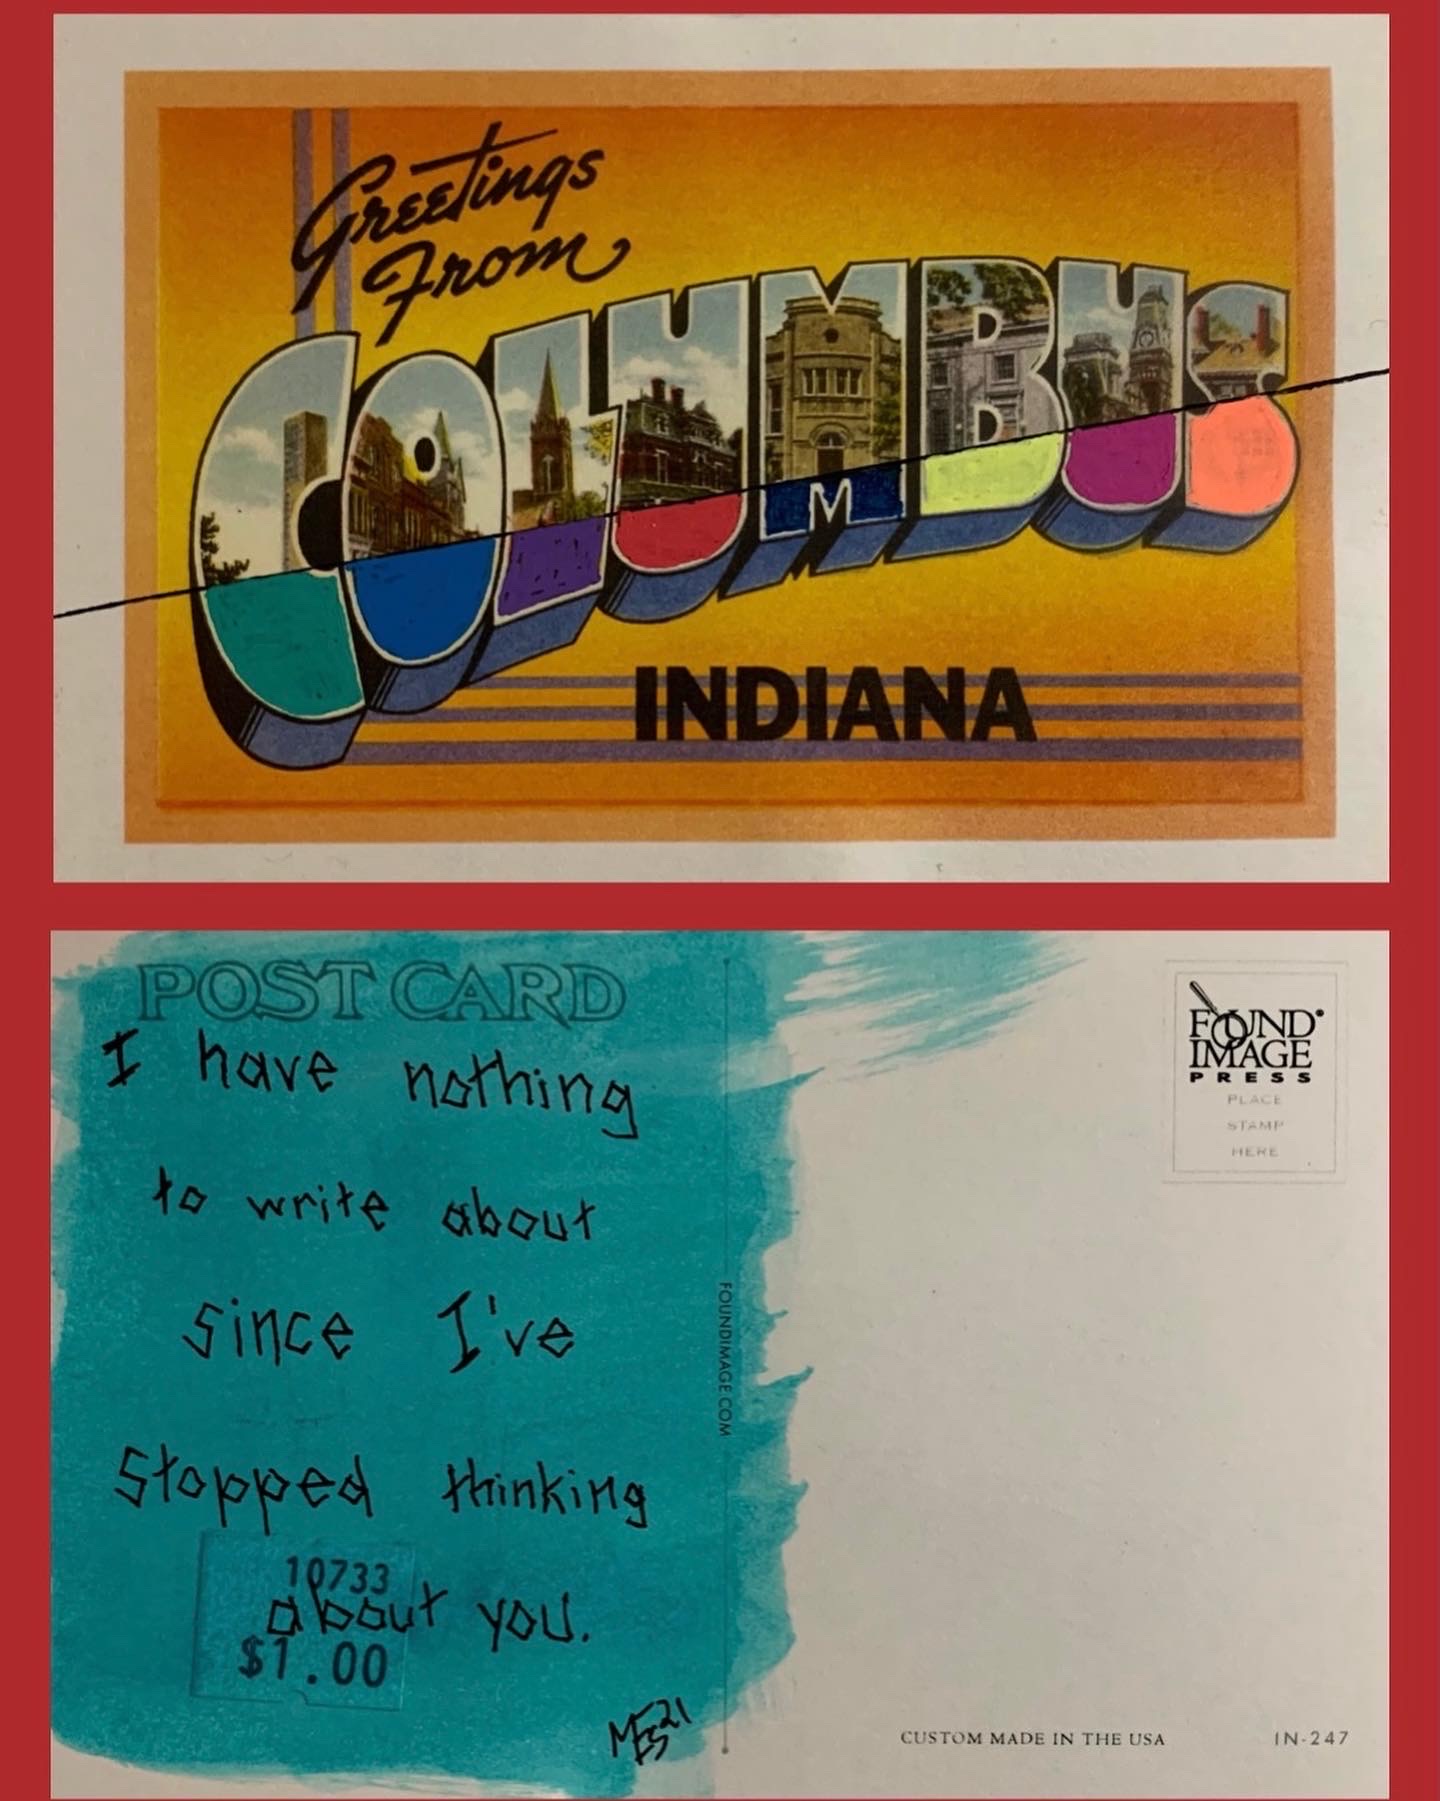 Greetings
From
COLUMBUS
INDIANA
POST CARD
I have nothing
to write about
since I've
stopped thinking
about you.
10733
$1.00
MES 21
FOUNDIMAGE.COM
FOUND®
IMAGE
PRESS
PLACE
STAMP
HERE
CUSTOM MADE IN THE USA
IN-247